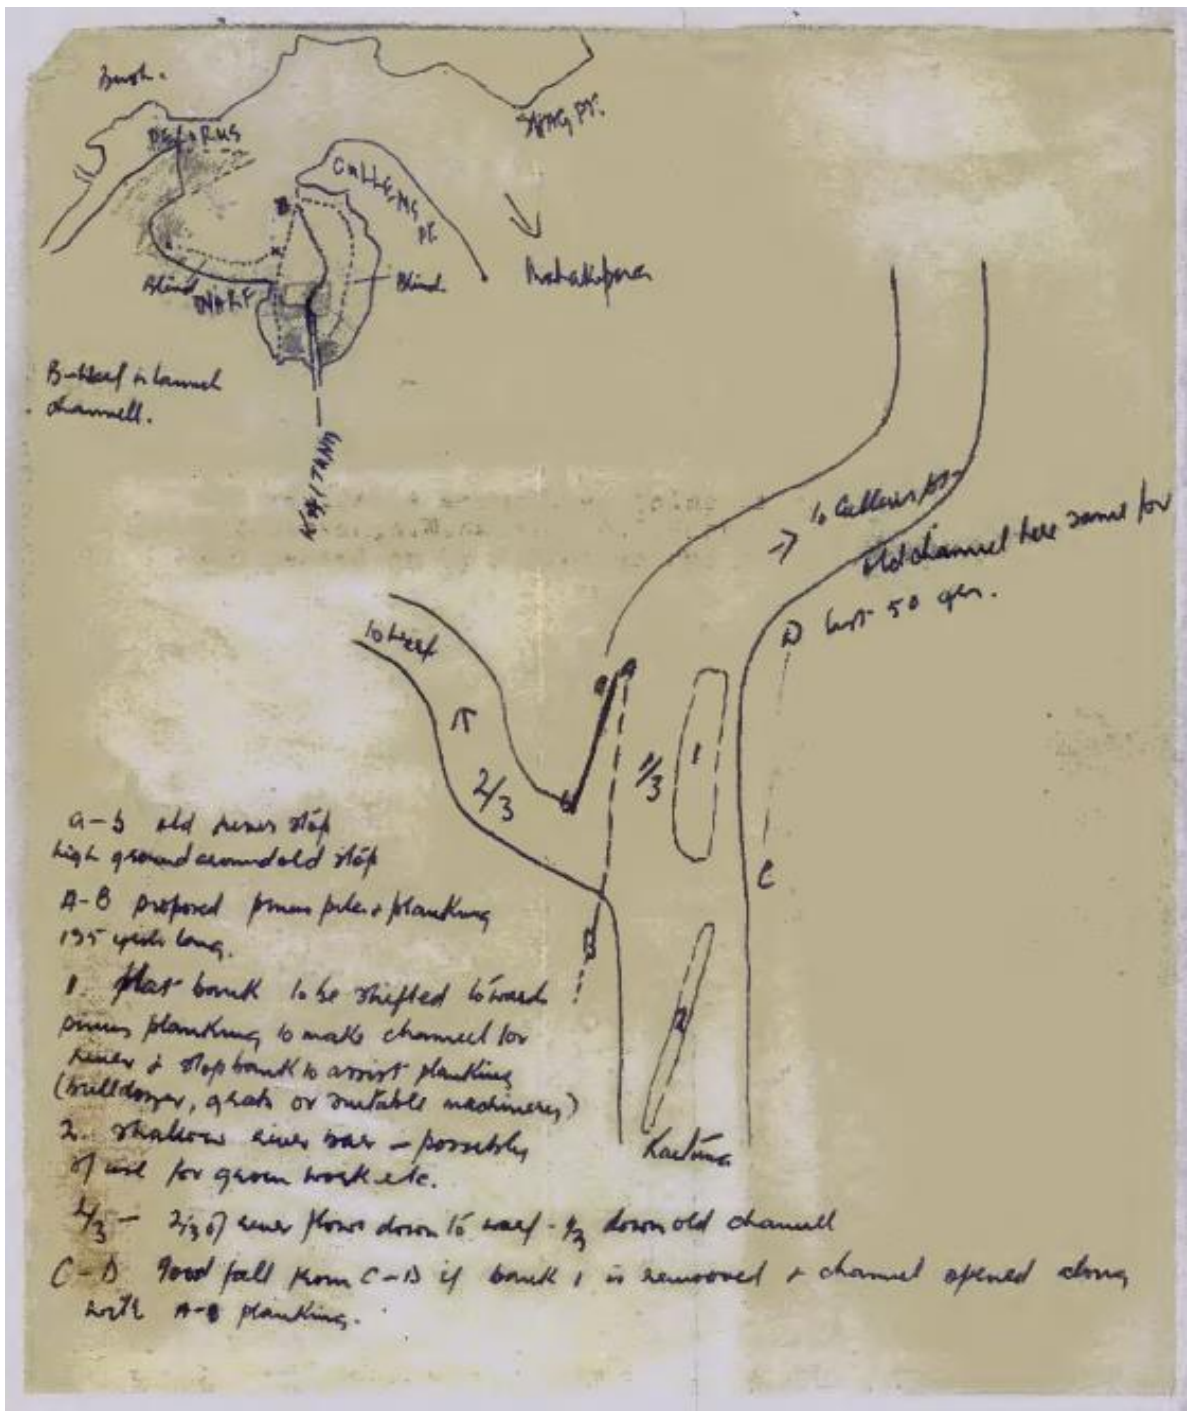 Bush.
DELORUS
SNAG PT.
CALLENS
PT.
Mahakipawa
Blind
WHARF
Blind
B-Wharf & launch
channell.
KAITUNA
to Callens pt
old channel here same for
last 50 yrs.
D
to Wharf
a
A
1/3
1
2/3
b
C
B
2
Kaituna
a-b old river stop
high ground around old stop
A-B proposed pinus piles & planking
195 yards long.
1. flat bank to be shifted towards
pinus planking to make channel for
river & stop bank to assist planking
(bulldozer, grab or suitable machinery)
2. shallow river bar - possibly
of use for groin work etc.
2/3 - 2/3 of river flows down to wharf - 1/3 down old channell
C-D good fall from C-D if bank 1 is removed & channel opened along
with A-B planking.